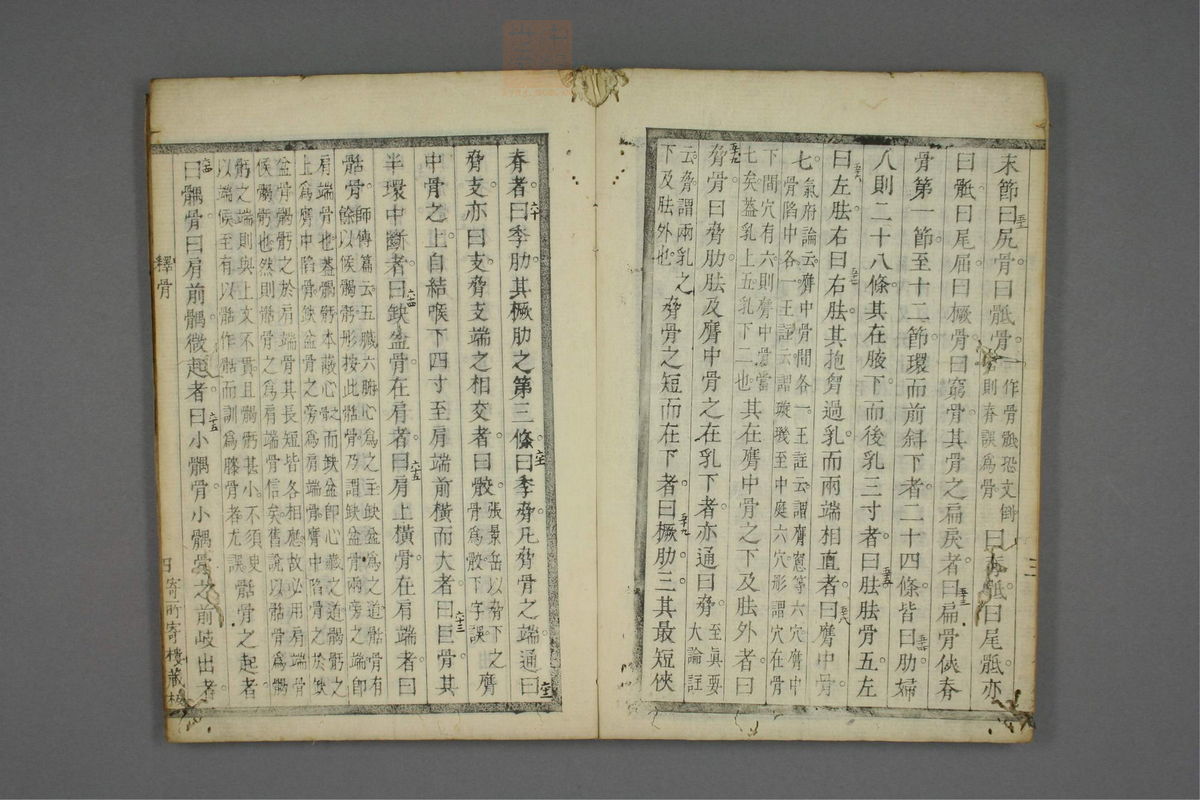 末節曰尻骨。曰骶骨。一作骨骶恐文倒
則脊誤爲骨。曰脊骶。曰尾骶。亦
曰骶。曰尾屈。曰橛骨。曰窮骨。其骨之扁戾者曰扁骨。俠脊
骨第一節至十二節。環而前斜下者二十四條。皆曰肋。婦
人則二十八條。其在腋下而後乳三寸者曰胠。胠骨五。左
曰左胠。右曰右胠。其抱胷過乳而兩端相直者。曰膺中骨
七。氣府論云膺中骨間各一王註云謂膺窻等六穴膺中
骨陷中各一王註云謂璇璣至中庭六穴形謂穴在骨
下間穴有六則膺中骨當
七矣蓋乳上五乳下二也其在膺中骨之下及胠外者曰
脅骨。曰脅肋。胠及膺中骨之在乳下者。亦通曰脅。至眞要
大論註
云脅謂兩乳之
下及胠外也
脅骨之短而在下者曰橛肋三。其最短俠
脊者。曰季肋。其橛肋之第三條。曰季脅。凡脅骨之端。通曰
脅支。亦曰支脅。支端之相交者。曰骹。張景岳以脅下之
骨爲骹下字誤
曲膺
中骨之上。自結喉下四寸至肩端前橫而大者。曰巨骨。其
半環中斷者。曰缺盆骨。在肩者。曰肩上橫骨。在肩端者曰
䯏骨。師傳篇云五臟六腑心爲之主缺盆爲之道䯏骨有
餘以候𩩲骬形按此䯏骨乃謂缺盆骨兩旁之端卽
肩端骨也蓋𩩲骬本蔽心之而缺盆卽心臟之道𩩲骬之
上爲膺中陷骨缺盆骨之旁爲肩端骨膺中陷骨之於缺
盆骨𩩲骬之於肩端骨其長短皆各相應故必用肩端骨
候𩩲骬也然則䯏骨之爲肩端骨信矣舊說以䯏骨爲𩩲
骬之端則與上文不貫且𩩲骬甚小不須更
以端候至有以䯏作骷而訓爲膝骨者尤誤䯏骨之起者
曰髃骨。曰肩前髃。微起者。曰小髃骨。小髃骨之前岐出者
釋骨
四 寄所寄樓藏板